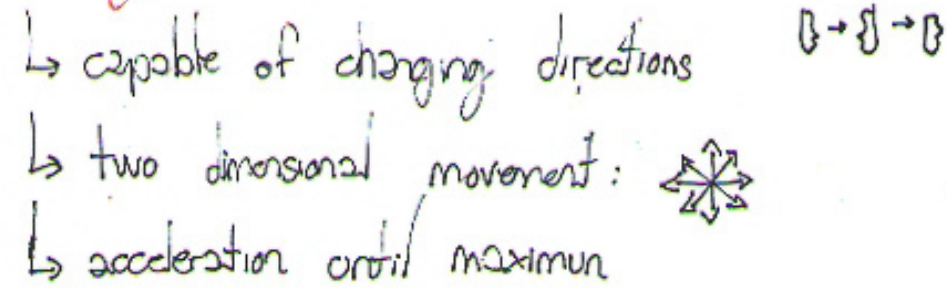 ↳ capable of changing directions
↳ two dimensional movement:
↳ acceleration until maximun